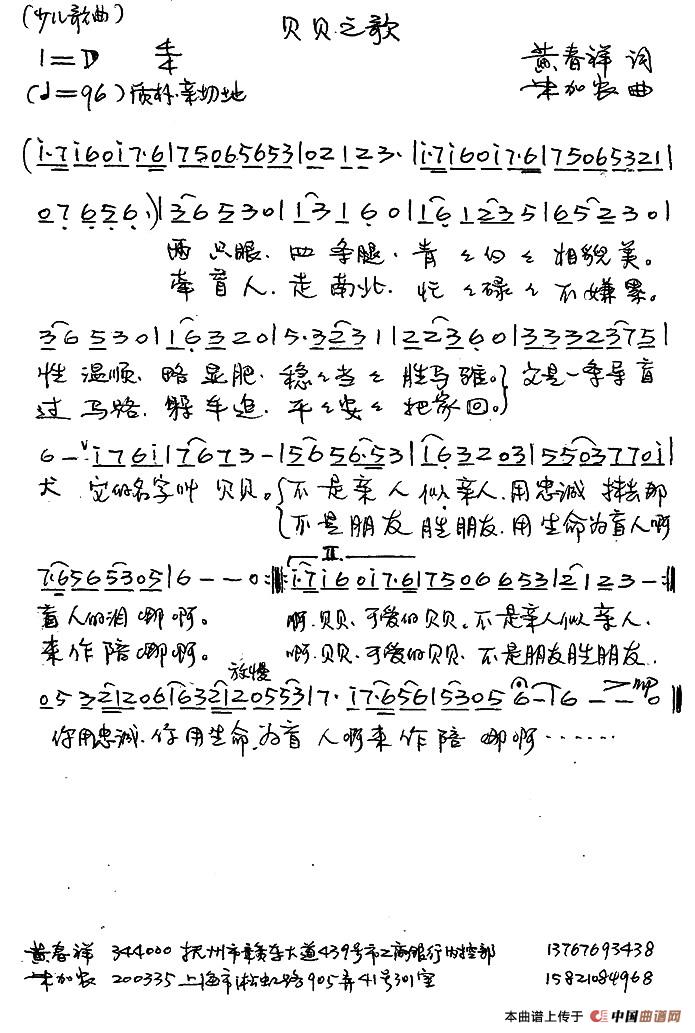 (少儿歌曲)
贝贝之歌
1=D 4/4
黄春祥 词
(♩=96) 质朴.亲切地
朱加农 曲
(i·7i60i7·6|75065653|02123·|i·7i60i7·6|75065321|
07656·)|36530|13160|161235|65230|
两只眼.四条腿.青々白々相貌美。
牵盲人.走南北.忙々碌々不嫌累。
36530|16320|5·3231|22360|33323275|
性温顺.略显肥.稳々当々胜马骓。}它是一条导盲
过马路.躲车追.平々安々把家回。}
6-i76i|7673-|56565·53|163203|5503770i|
犬 它的名字叫 贝贝。{不是亲人似亲人.用忠诚 抹去那
{不是朋友胜朋友.用生命为盲人啊
7·6565305|6---0:‖:i·7i60i7·6|7506653|2123-:‖
II.
盲人的泪啊啊。 啊.贝贝.可爱的贝贝.不是亲人似亲人.
来作陪啊啊。 啊.贝贝.可爱的贝贝.不是朋友胜朋友.
放慢
053212061632120553|7·i7·6561530566---0‖
你用忠诚.你用生命.为盲人啊来作陪啊啊……
黄春祥 344000 抚州市赣东大道439号市工商银行内控部 13767693438
朱加农 200335 上海市淞虹路905弄41号301室 15821084968
本曲谱上传于 中国曲谱网